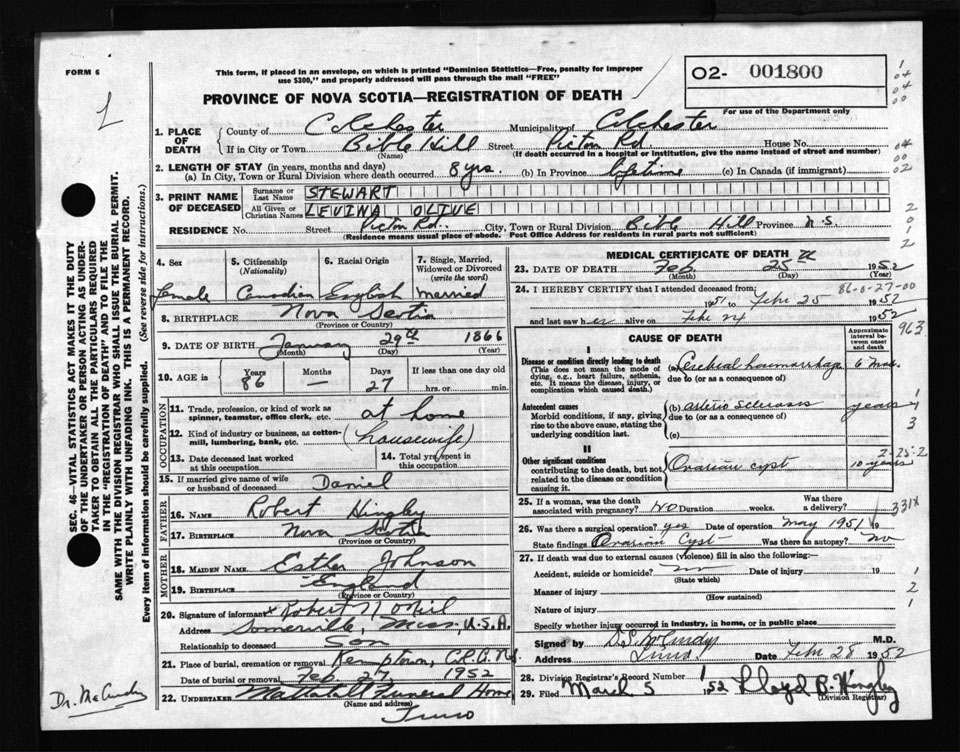 FORM 6
This form, if placed in an envelope, on which is printed "Dominion Statistics—Free, penalty for improper
use $300," and properly addressed will pass through the mail "FREE"
O2- 001800
PROVINCE OF NOVA SCOTIA—REGISTRATION OF DEATH
For use of the Department only
1. PLACE OF DEATH
County of Colchester Municipality of Colchester
If in City or Town Bible Hill Street Picton Rd. House No.
(Name) (If death occurred in a hospital or institution, give the name instead of street and number)
2. LENGTH OF STAY (in years, months and days)
(a) In City, Town or Rural Division where death occurred 8 yrs. (b) In Province lifetime (c) In Canada (if immigrant)
3. PRINT NAME OF DECEASED
Surname or Last Name STEWART
All Given or Christian Names LEVINA OLIVE
RESIDENCE No. Street Picton Rd. City, Town or Rural Division Bible Hill Province N.S.
(Residence means usual place of abode. Post Office Address for residents in rural parts not sufficient)
4. Sex
female
5. Citizenship (Nationality)
Canadian
6. Racial Origin
English
7. Single, Married, Widowed or Divorced (write the word)
married
8. BIRTHPLACE Nova Scotia
(Province or Country)
9. DATE OF BIRTH January 29th 1866
(Month) (Day) (Year)
10. AGE in Years 86 Months — Days 27 If less than one day old hrs. or min.
OCCUPATION
11. Trade, profession, or kind of work as spinner, teamster, office clerk, etc. at home
12. Kind of industry or business, as cotton-mill, lumbering, bank, etc. (housewife)
13. Date deceased last worked at this occupation
14. Total yrs. spent in this occupation
15. If married give name of wife or husband of deceased Daniel
FATHER
16. NAME Robert Hingley
17. BIRTHPLACE Nova Scotia
(Province or Country)
MOTHER
18. MAIDEN NAME Esther Johnson
19. BIRTHPLACE England
(Province or Country)
20. Signature of informant x Robert
Address Somerville, Mass, U.S.A.
Relationship to deceased Son
21. Place of burial, cremation or removal Kemptown,
Date of burial or removal Feb. 27, 1952
22. UNDERTAKER Mattatall Funeral Home
(Name and address)
Truro
MEDICAL CERTIFICATE OF DEATH
23. DATE OF DEATH Feb. 25 1952
(Month) (Day) (Year)
86-0-27-00
24. I HEREBY CERTIFY that I attended deceased from:
1951 to Feb 25 1952
and last saw her alive on Feb 24 1952
CAUSE OF DEATH
Approximate interval between onset and death
963
I
Disease or condition directly leading to death
(This does not mean the mode of dying, e.g., heart failure, asthenia, etc. It means the disease, injury, or complication which caused death.)
(a) Cerebral heamorrhage 6 mos.
due to (or as a consequence of)
Antecedent causes
Morbid conditions, if any, giving rise to the above cause, stating the underlying condition last.
(b) arterio sclerosis years
due to (or as a consequence of)
(c)
II
Other significant conditions
contributing to the death, but not related to the disease or condition causing it.
Ovarian cyst 10 years
2-25-2
25. If a woman, was the death associated with pregnancy? NO Duration weeks. Was there a delivery?
331X
26. Was there a surgical operation? yes Date of operation May 1951 19
State findings Ovarian Cyst Was there an autopsy? no
27. If death was due to external causes (violence) fill in also the following:—
Accident, suicide or homicide? no Date of injury 19
(State which)
Manner of injury
(How sustained)
Nature of injury
Specify whether injury occurred in industry, in home, or in public place
Signed by M.D.
Address Truro. Date Feb 28 1952
28. Division Registrar's Record Number 1
29. Filed March 5 1952 Lloyd B. Hingley
(Division Registrar)
SEC. 46—VITAL STATISTICS ACT MAKES IT THE DUTY
OF THE UNDERTAKER OR PERSON ACTING AS UNDER-
TAKER TO OBTAIN ALL THE PARTICULARS REQUIRED
IN THE "REGISTRATION OF DEATH" AND TO FILE THE
SAME WITH THE DIVISION REGISTRAR WHO SHALL ISSUE THE BURIAL PERMIT.
WRITE PLAINLY WITH UNFADING INK. THIS IS A PERMANENT RECORD.
Every item of Information should be carefully supplied. (See reverse side for instructions.)